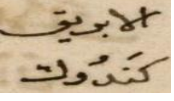 الابريق
كَندُوك